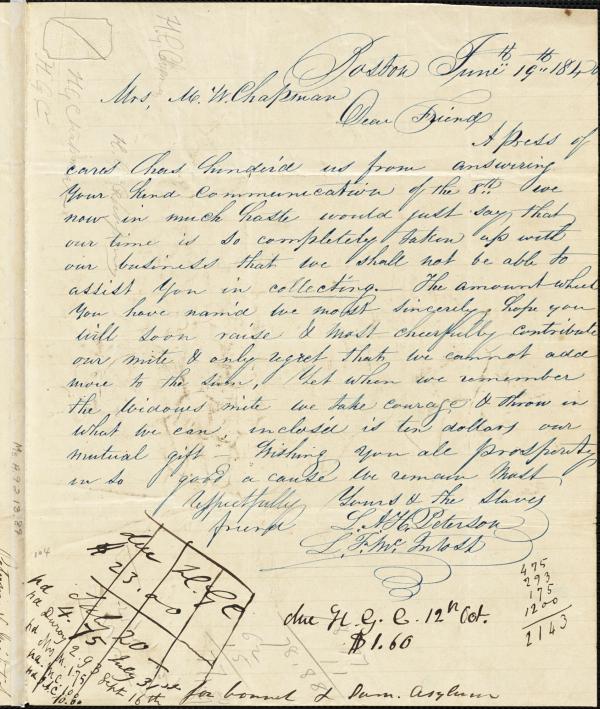 Boston June 19th 184
Mrs, M. W. Chapman
Dear Friend
A press of
cares has hinder'd us from answering
Your kind communication of the 8th we
now in much haste would just say that
our time is so completely taken up with
our business that we shall not be able to
assist You in collecting. The amount which
You have nam'd we most sincerely hope you
will soon raise & most cheerfully contribute
our mite & only regret that we cannot add
more to the sum, Yet when we remember
the widows mite we take courage & throw in
what we can. inclosed is ten dollars our
mutual gift — Wishing you all prosperity
in so good a cause we remain Most
respectfully Yours & the slaves
friend L. A. H. Peterson
L. F. Mc. Intosh
due H. G. C.
$23.00
July 20
July 31st
Sept 16th
pd 4.75
293
1.75
10.00
due H. G. C. 12th Oct.
$1.60
for bonnet & Dom. Asylum
475
293
175
1200
2143
H G Chapman
H G C
104